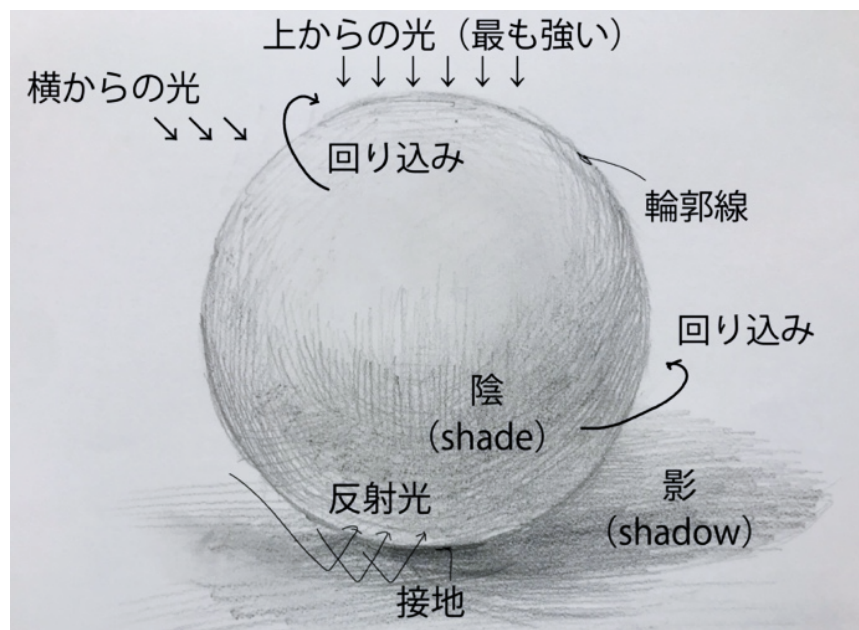 上からの光（最も強い）
横からの光
回り込み
輪郭線
回り込み
陰
（shade）
反射光
影
（shadow）
接地